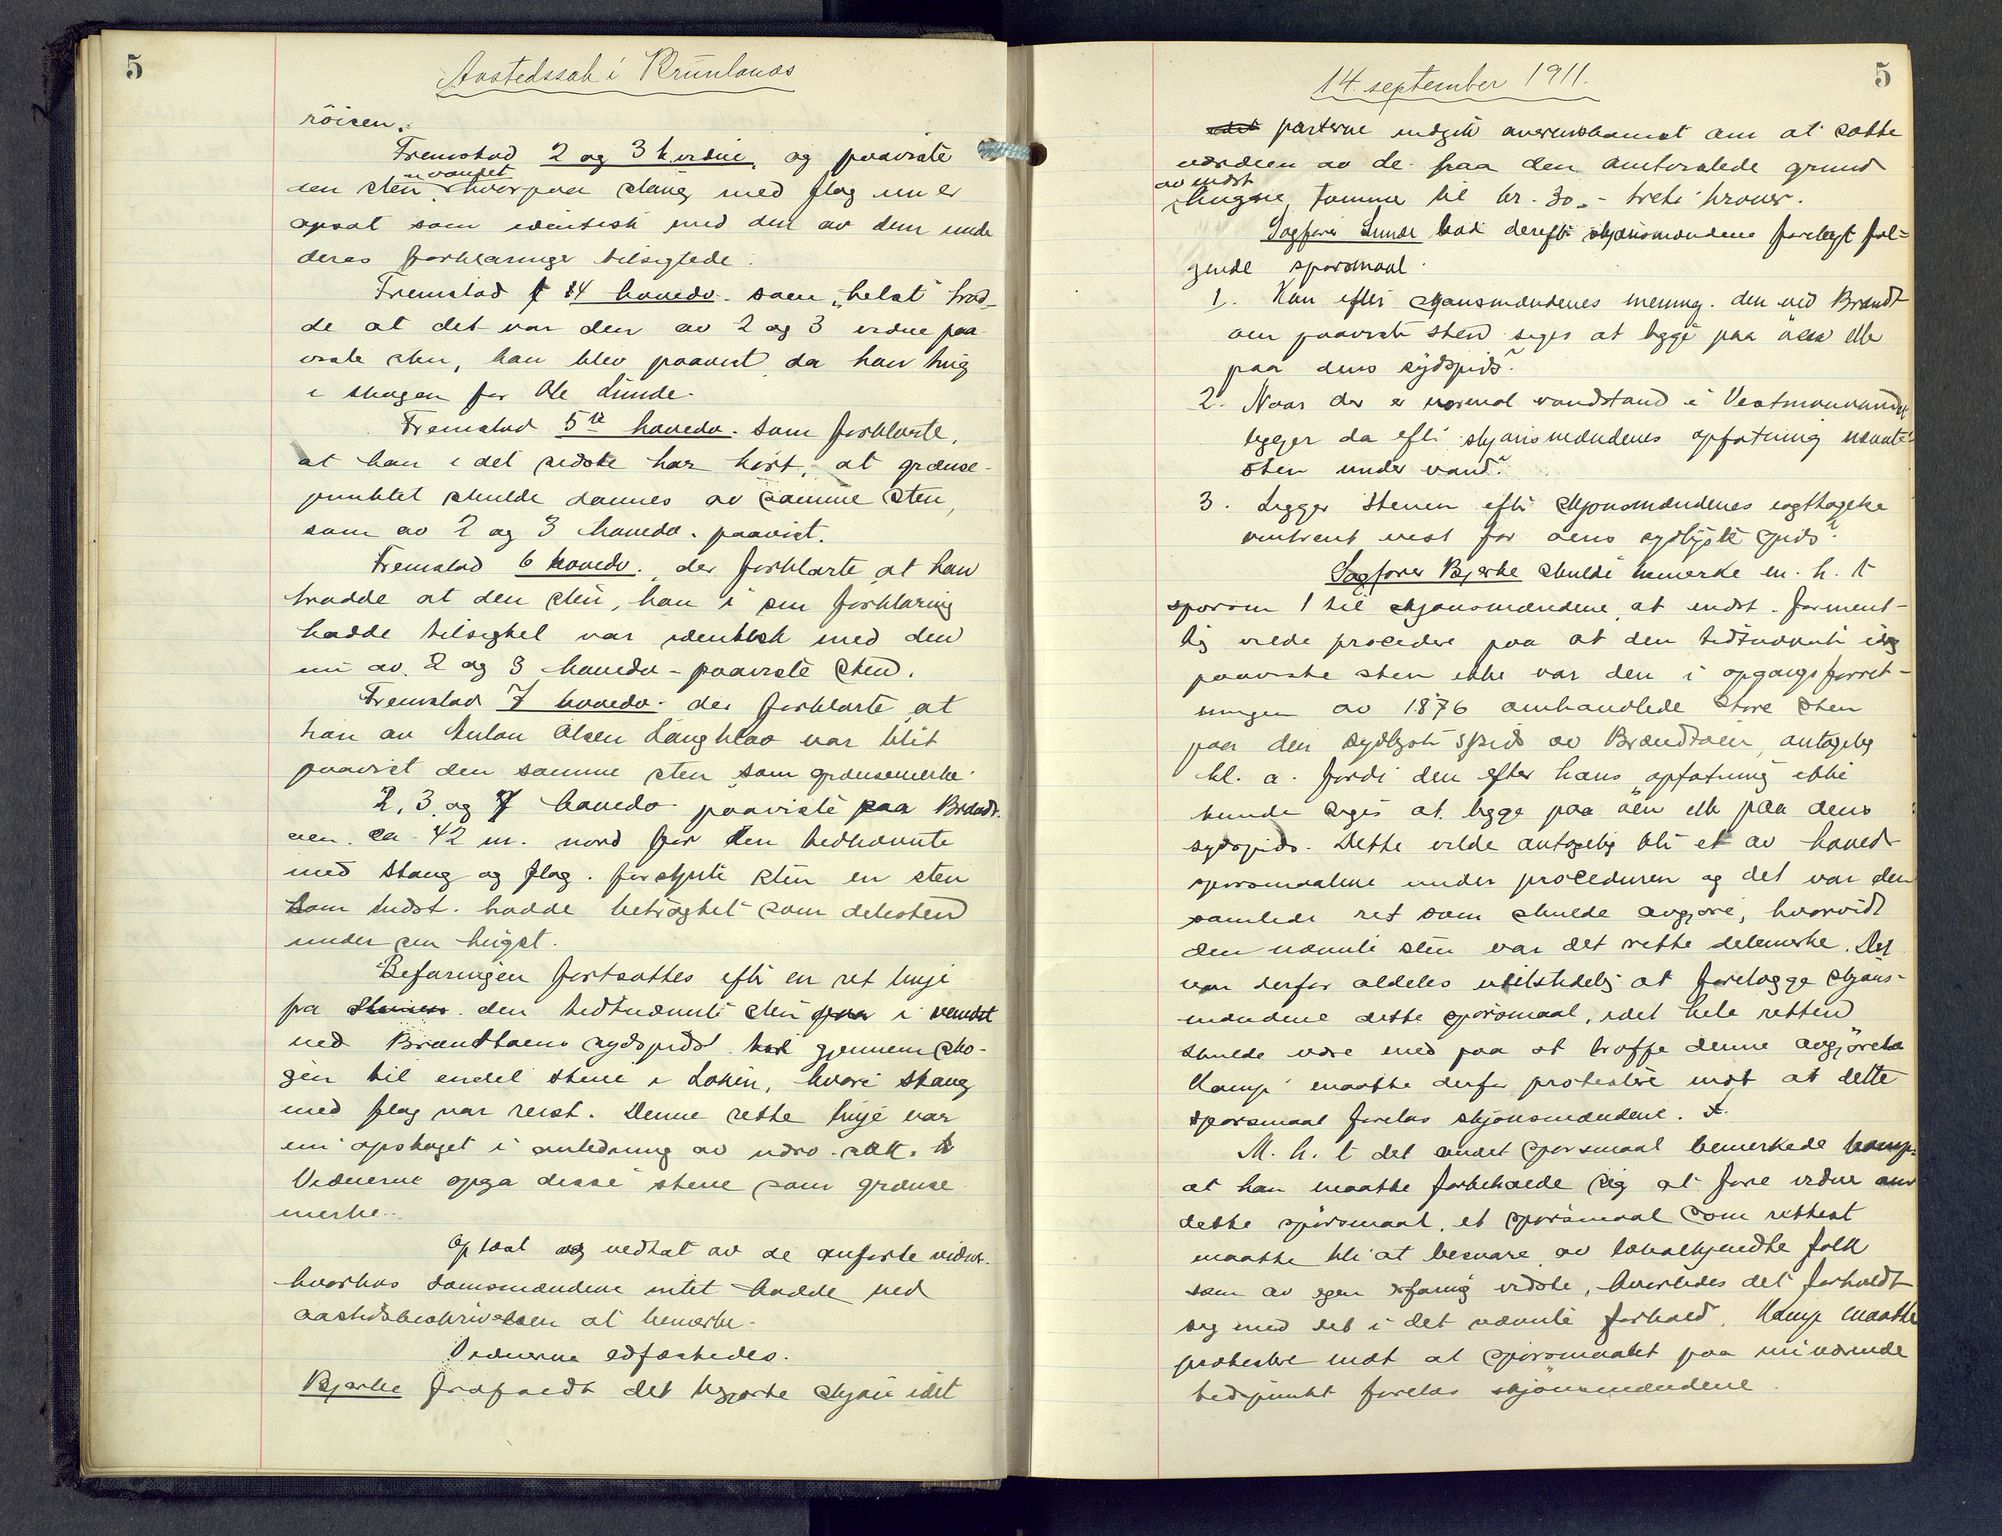 5
Aastedssak i Brunlanes
röisen.
Fremstod 2 og 3 h. vidne, og paaviste
i vandet
den sten, hvorpaa stang med flag nu er
opsat som identisk med den av dem under
deres forklaringer tilsigtede.
Fremstod 4 hovedv. som „helst" trod-
de at det var den av 2 og 3 vidne paa
viste sten, han blev paavist da han hug
i skogen for Ole Lunde.
Fremstod 5te hovedv. som forklarte,
at han i det sidste har hørt, at grænse-
punktet skulde dannes av samme sten,
som av 2 og 3 hovedv. paavist.
Fremstod 6 hovedv. der forklarte at han
trodde at den sten, han i sin forklaring
hadde tilsigtet var identisk med den
nu av 2 og 3 hovedv. paaviste sten.
Fremstod 7 hovedv. der forklarte at
han av Anton Olsen Langklao var blit
paavist den samme sten som grænsemerke.
2, 3 og 7 hovedv. paaviste paa Brandt-
øen ca. 42 m. nord for den bednævnte
med stang og flag forsynte sten en sten
som indst. hadde betragtet som delesten
under sin hugst.
Befaringen fortsattes efter en ret linje
fra den bedtnævnte sten i vandet
ved Brandtøens sydspids gjennem sko-
gen til endel stene i Løkin, hvori stang
med flag var reist. Denne rette linje var
nu ophugget i anledning av nærv. sak.
Vidnerne opga disse stene som grænse
merke.
Oplæst og vedtat av de anførte vidner
hvorhos domsmændene intet hadde ved
aastedsbeskrivelsen at bemerke.
Vidnerne edfæstedes.
Bjerke frafaldt det begjærte skjøn idet
14. september 1911.
5
parterne indgik overenskomst om at sætte
værdien av de fra den omtvistede grund
av indst
hugne tømmer til kr. 30,- treti kroner.
Sagfører Lunde bad derefter skjønsmændene forelagt føl-
gende spørsmaal.
1. Kan efter skjønsmændenes mening den ved Brandt-
øen paaviste sten siges at ligge paa øen eller
paa dens sydspids?
2. Naar der er normal vandstand i Vestmanvandet
ligger da efter skjønsmændenes opfatning nævnte
sten under vand?
3. Ligger stenen efter skjønsmændenes iagttagelse
omtrent vest for øens sydligste spids?
Sagfører Bjerke skulde bemerke m. h. t
spørsm 1 til skjønsmændene, at indst. forment-
lig vilde procedere paa at den bedtnævnte idag
paaviste sten ikke var den i opgangsforret-
ningen av 1876 omhandlede store sten
paa den sydligste spids av Brandtøen, antagelig
bl. a. fordi den efter hans opfatning ikke
kunde siges at ligge paa øen eller paa dens
sydspids. Dette vilde antagelig bli et av hoved-
spørsmaalene under proceduren og det var den
samlede ret som skulde avgjøre, hvorvidt
den nævnte sten var det rette delemerke. Det
var derfor aldeles utilstedelig at forelægge skjøns-
mændene dette spørsmaal, idet hele retten
skulde være med paa at træffe denne avgjørelse
Komp. maatte derfor protestere mot at dette
spørsmaal forelæs skjønsmændene.
M. h. t det andet spørsmaal bemerkede komp.
at han maatte forbeholde sig at føre vidner om
dette spørsmaal, et spørsmaal som rettest
maatte bli at besvare av lokalkjendte folk
som av egen erfaring vidste, hvorledes det forholdt
sig med det i det nævnte forhold. Komp maatte
protestere mot at spørsmaalet paa nuværende
tidspunkt forelæs skjønsmændene.